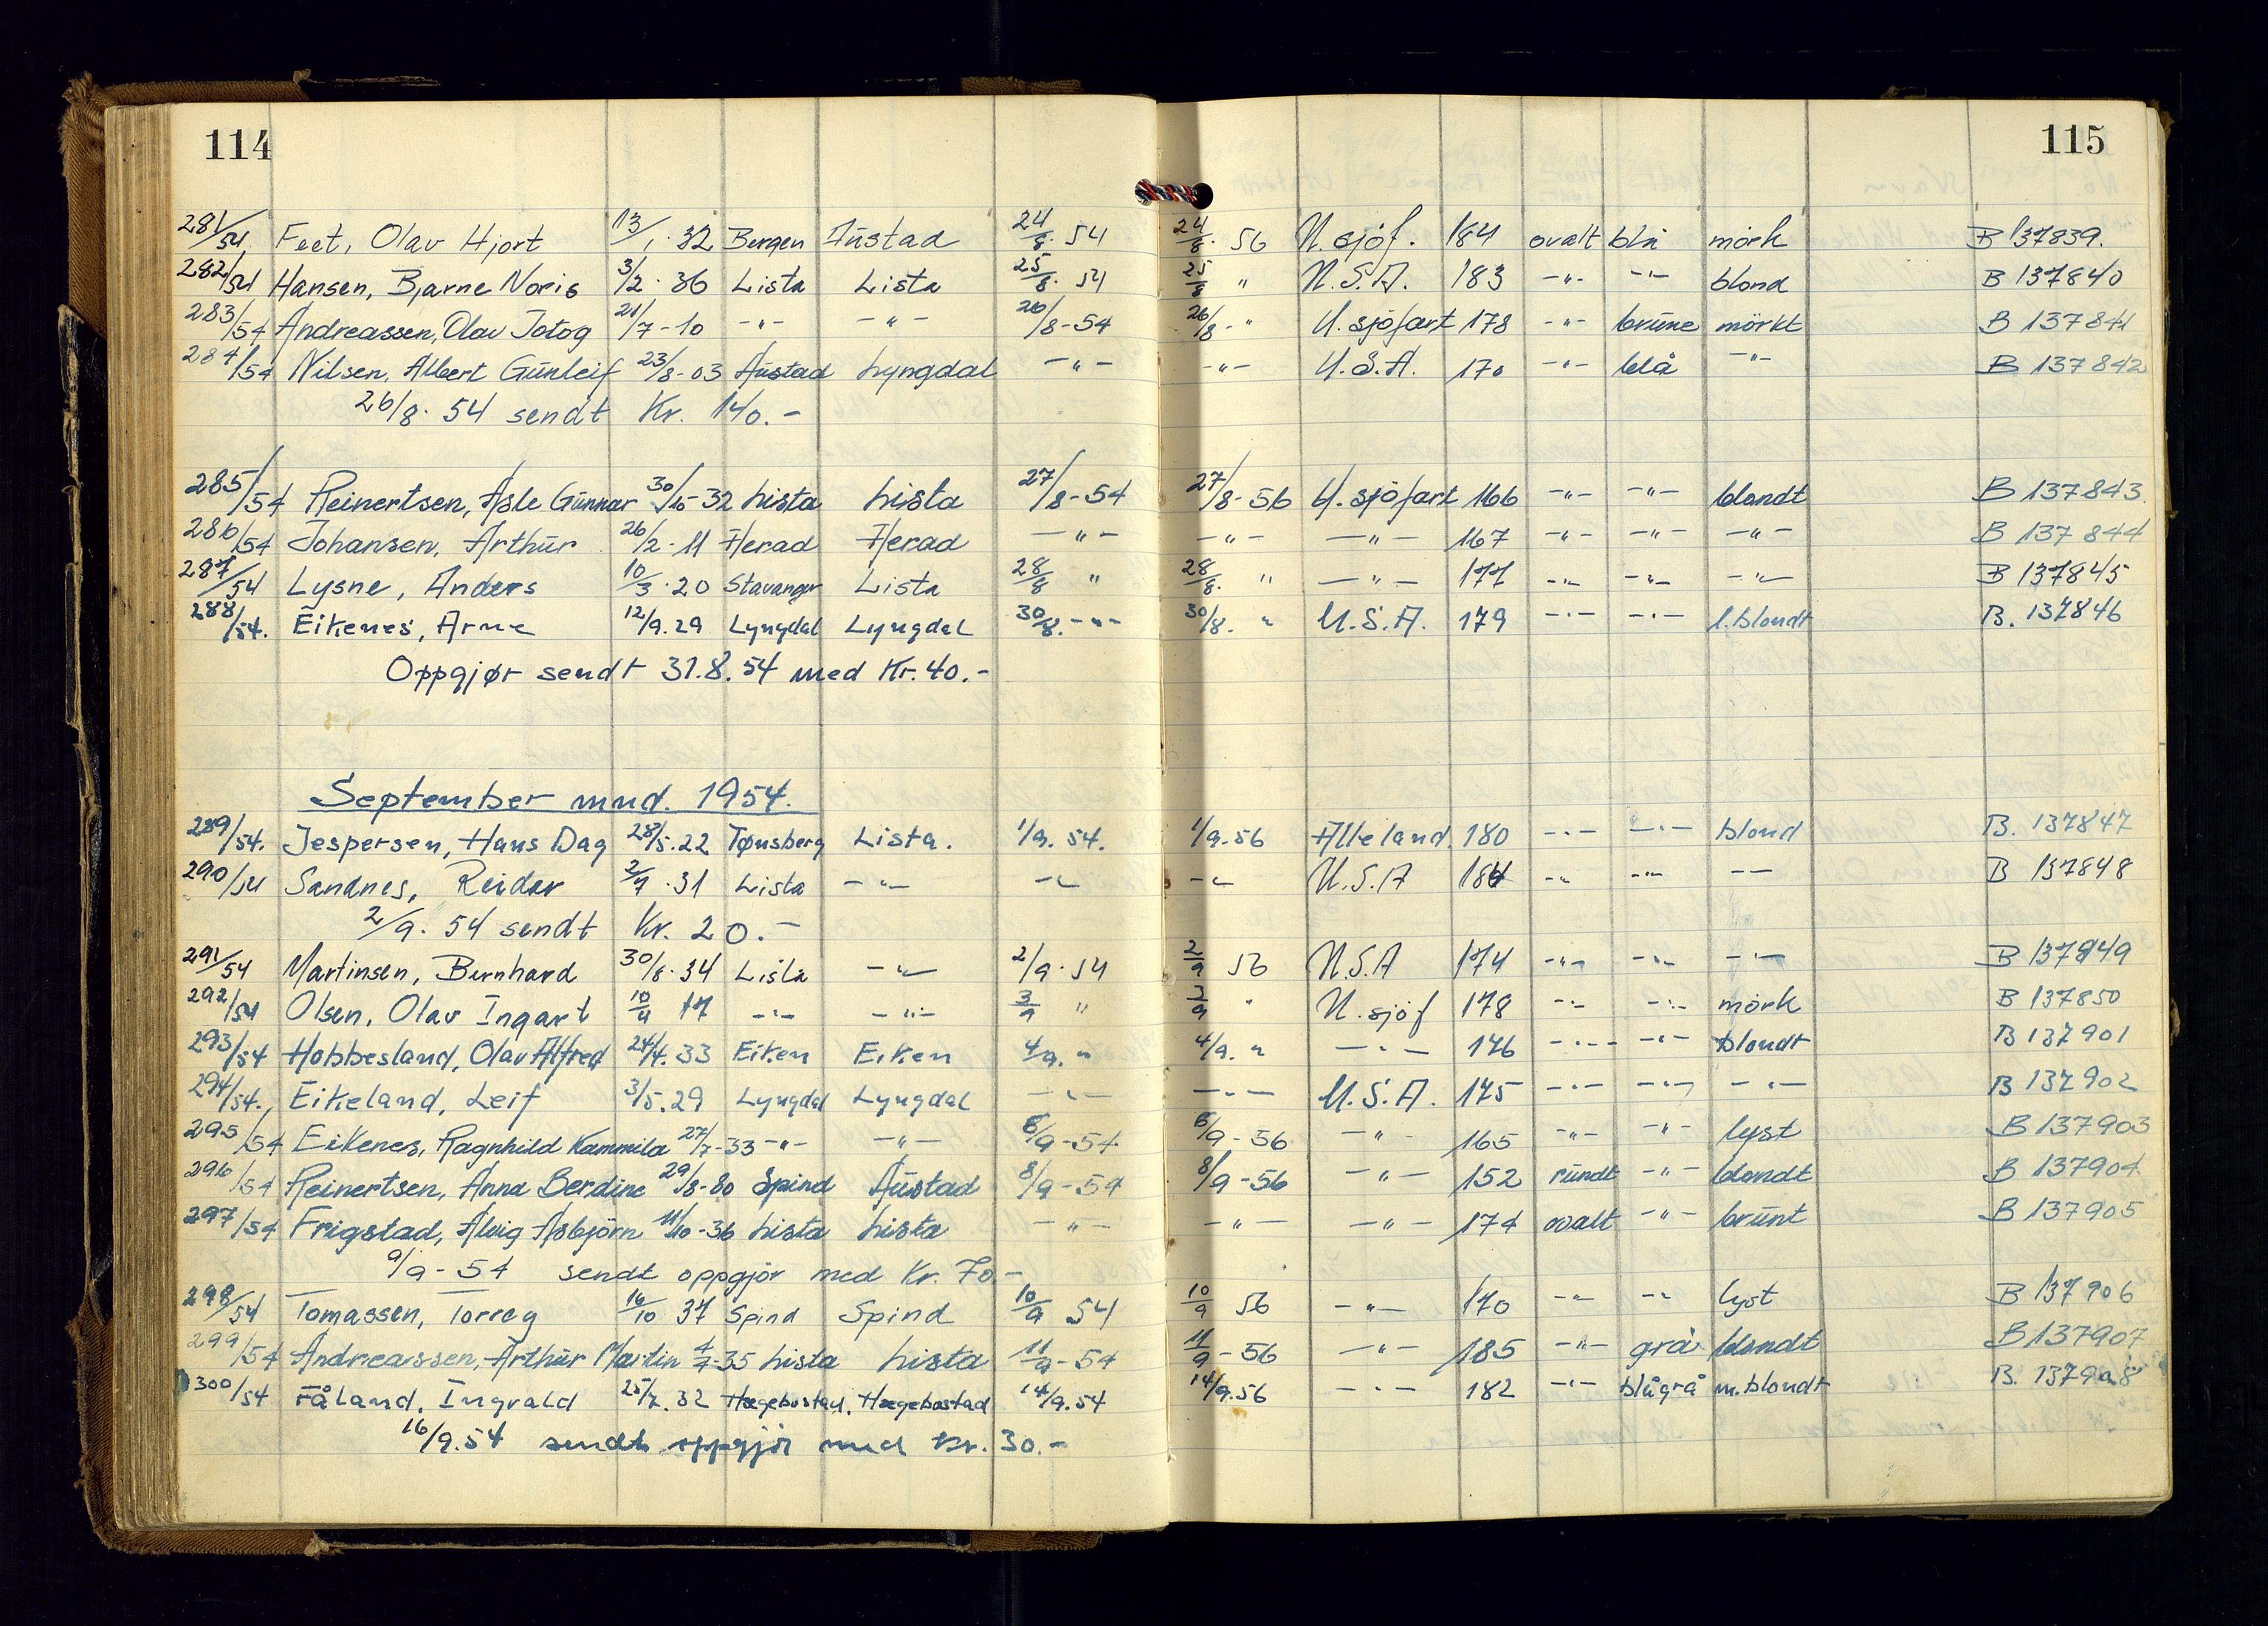 114
115
281/54. Feet, Olav Hjort 13/1. 32 Bergen Austad 24/8. 54 24/8. 56 U. sjöf. 184 ovalt blå mörk B 137839.
282/54 Hansen, Bjarne Noris 3/2. 36 Lista Lista 25/8. 54 25/8 " U.S.A. 183 -"- -"- blond B 137840
283/54 Andreassen, Olav 21/7-10 -"- -"- 26/8-54 26/8-" U. sjöfart 178 -"- brune mörkt B 137841
284/54 Nilsen, Albert Gunleif 23/8-03 Austad Lyngdal -"- -"- U.S.A. 170 -"- blå -"- B 137842
26/8. 54 sendt Kr. 140.-
285/54 Reinertsen, Asle Gunnar 30/10-32 Lista Lista 27/8-54 27/8-56 U. sjöfart 166 -"- -"- blondt B 137843
286/54 Johansen, Arthur 26/2-11 Herad Herad -"- -"- -"- 167 -"- -"- -"- B 137844
287/54 Lysne, Anders 10/3. 20 Stavanger Lista 28/8 " 28/8. " -"- 177 -"- -"- -"- B 137845
288/54. Eikenes, Arne 12/9. 29 Lyngdal Lyngdal 30/8. -"- 30/8. " U.S.A. 179 -"- -"- l.blondt B. 137846
Oppgjør sendt 31.8.54 med Kr. 40.-
September mnd. 1954.
289/54. Jespersen, Hans Dag 28/5. 22 Tønsberg Lista. 1/9. 54. 1/9. 56 Alle land. 180 -"- -"- blond B. 137847
290/54 Sandnes, Reidar 2/9. 31 Lista -"- -"- -"- U.S.A 184 -"- -"- -"- B 137848
2/9. 54 sendt Kr. 20.-
291/54 Martinsen, Bernhard 30/8. 34 Lista -"- 2/9. 54 2/9 56 U.S.A 174 -"- -"- -"- B 137849
292/54 Olsen, Olav Ingart 10/4 17 -"- -"- 3/9 " 3/9 " U. sjöf 178 -"- -"- mörk B 137850
293/54 Hobbesland, Olav Alfred 24/4. 33 Eiken Eiken 4/9. " 4/9. " -"- 176 -"- -"- blondt B 137901
294/54. Eikeland, Leif 3/5. 29 Lyngdal Lyngdal -"- -"- U.S.A. 175 -"- -"- -"- B 137902
295/54 Eikenes, Ragnhild Kammila 27/7-33 -"- -"- 6/9-54 6/9-56 -"- 165 -"- -"- lyst B 137903
296/54 Reinertsen, Anna Berdine 29/8-80 Spind Austad 8/9-54 8/9-56 -"- 152 rundt -"- blondt B 137904
297/54 Frigstad, Alvig Asbjörn 11/10-36 Lista Lista -"- -"- -"- 174 ovalt -"- brunt B 137905
9/9-54 sendt oppgjör med Kr. 70.-
298/54 Tomassen, Torreg 16/10 37 Spind Spind 10/9 54 10/9 56 -"- 170 -"- -"- lyst B 137906
299/54 Andreassen, Arthur Martin 4/7-35 Lista Lista 11/9-54 11/9-56 -"- 185 -"- grå blondt B 137907
300/54 Fåland, Ingvald 25/7. 32 Hægebostad. Hægebostad 14/9.54 14/9.56 -"- 182 -"- blågrå m.blondt B. 137908
16/9.54 sendt oppgjör med Kr. 30.-